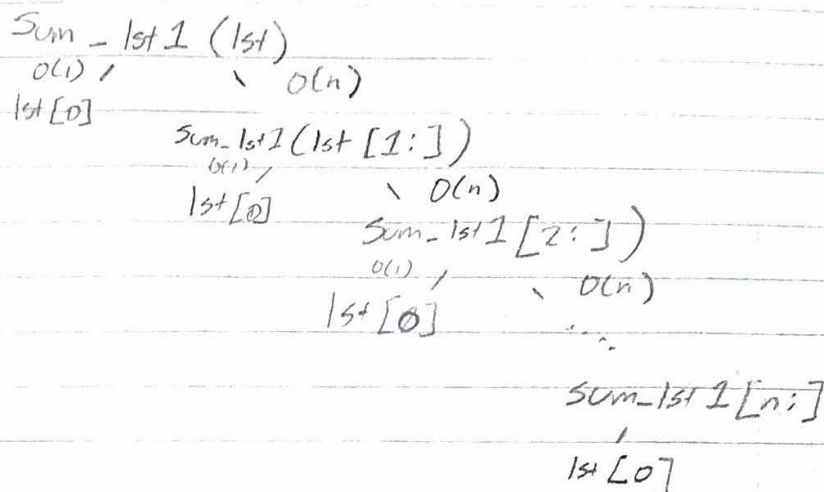 Sum_lst1 (lst)
O(1) O(n)
lst[0]
sum_lst1(lst [1:])
O(1)
lst[0] O(n)
sum_lst1[2:])
O(1) O(n)
lst[0]
sum_lst1[n:]
lst[0]